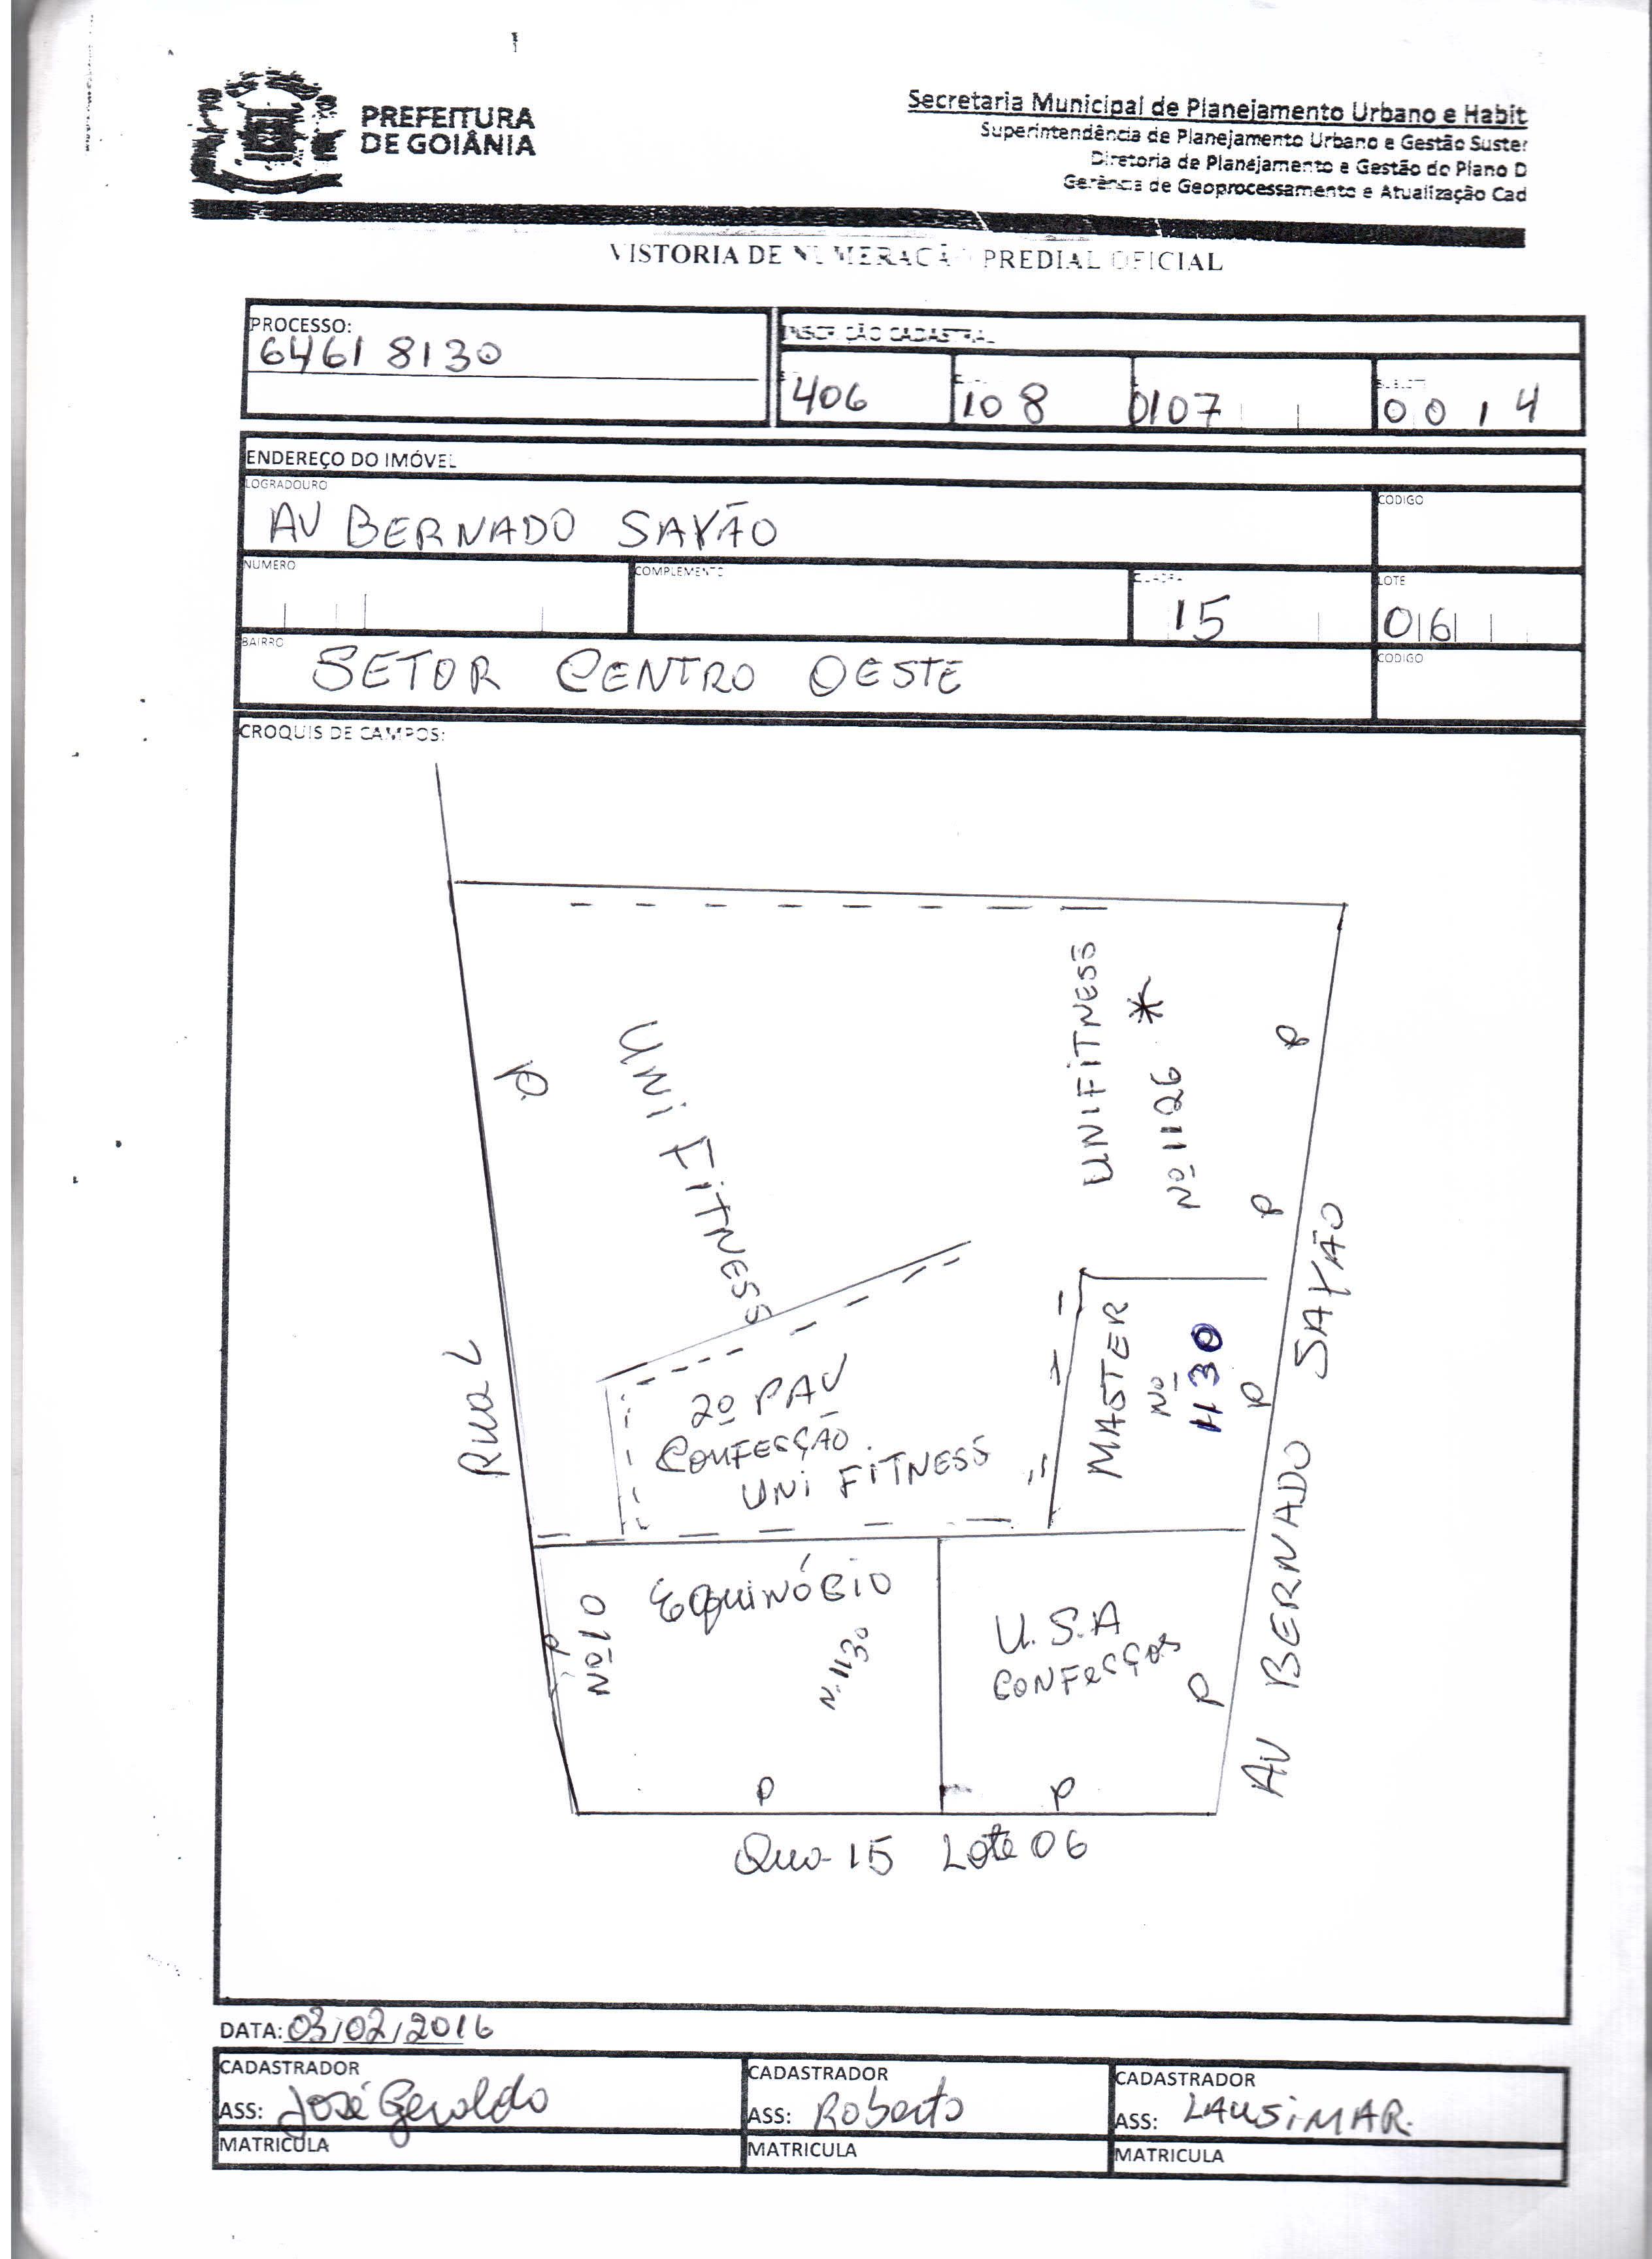 PREFEITURA
DE GOIÂNIA
Secretaria Municipal de Planejamento Urbano e Habit
Superintendência de Planejamento Urbano e Gestão Suster
Diretoria de Planejamento e Gestão do Plano D
Gerência de Geoprocessamento e Atualização Cad
VISTORIA DE NUMERAÇÃO PREDIAL OFICIAL
PROCESSO:
64618130
INSCRIÇÃO CADASTRAL
406 108 0107 0014
ENDEREÇO DO IMÓVEL
LOGRADOURO
CODIGO
AV BERNADO SAYÃO
NUMERO
COMPLEMENTO
QUADRA
LOTE
15
016
BAIRRO
CODIGO
SETOR CENTRO OESTE
CROQUIS DE CAMPOS:
UNI FITNESS
UNIFITNESS
Nº 1126 *
P
P
P
Rua L
2º PAV
CONFECÇÃO
UNI FITNESS
MASTER
Nº
1130
P
AV BERNADO SAYÃO
EQUINÓCIO
Nº 10
P
N. 1130
U.S.A
CONFECÇOS
P
P
P
Qua- 15 Lote 06
DATA: 03/02/2016
CADASTRADOR
ASS: José Geraldo
MATRICULA
CADASTRADOR
ASS: Roberto
MATRICULA
CADASTRADOR
ASS: LAUSIMAR.
MATRICULA